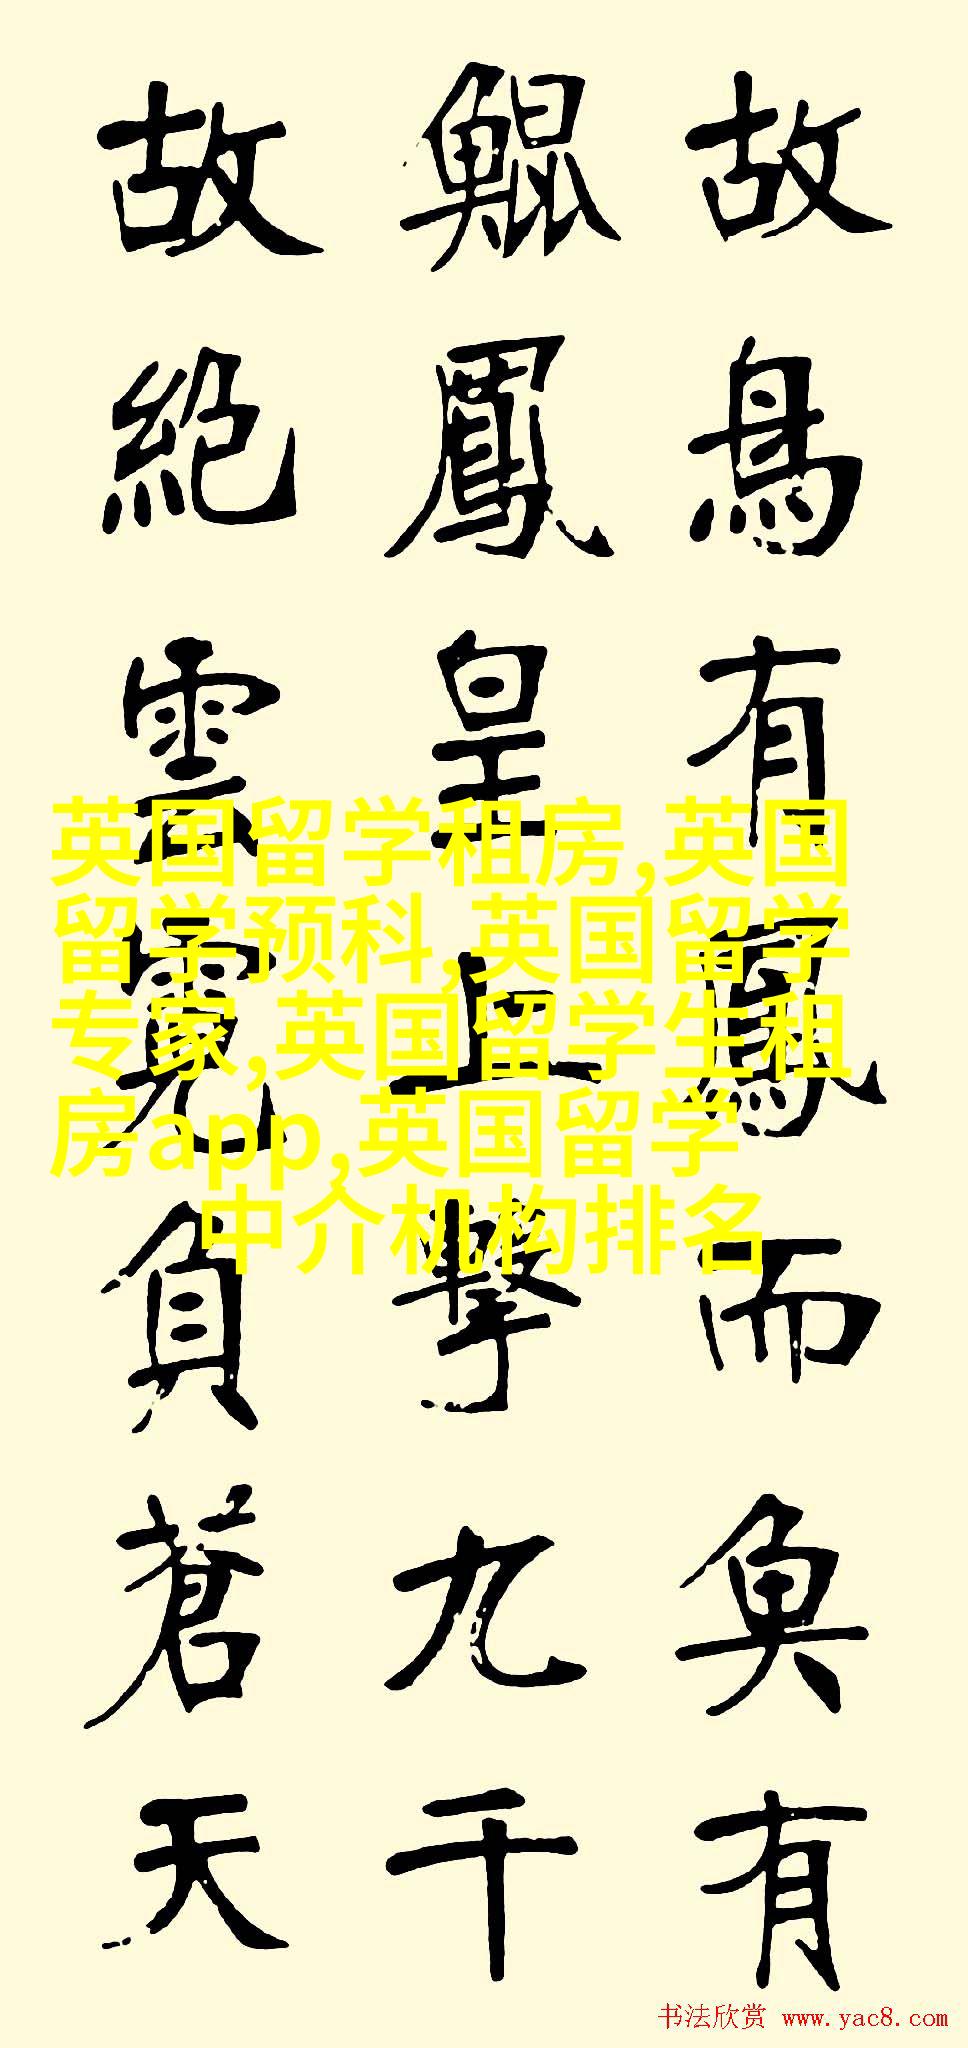 故鳥有鳳而魚有
鯤鳳皇上擊九千
故絕雲霓負蒼天
英国留学租房,英国
留学预科,英国留学
专家,英国留学生租
房app,英国留学
中介机构排名
书法欣赏 www.yac8.com